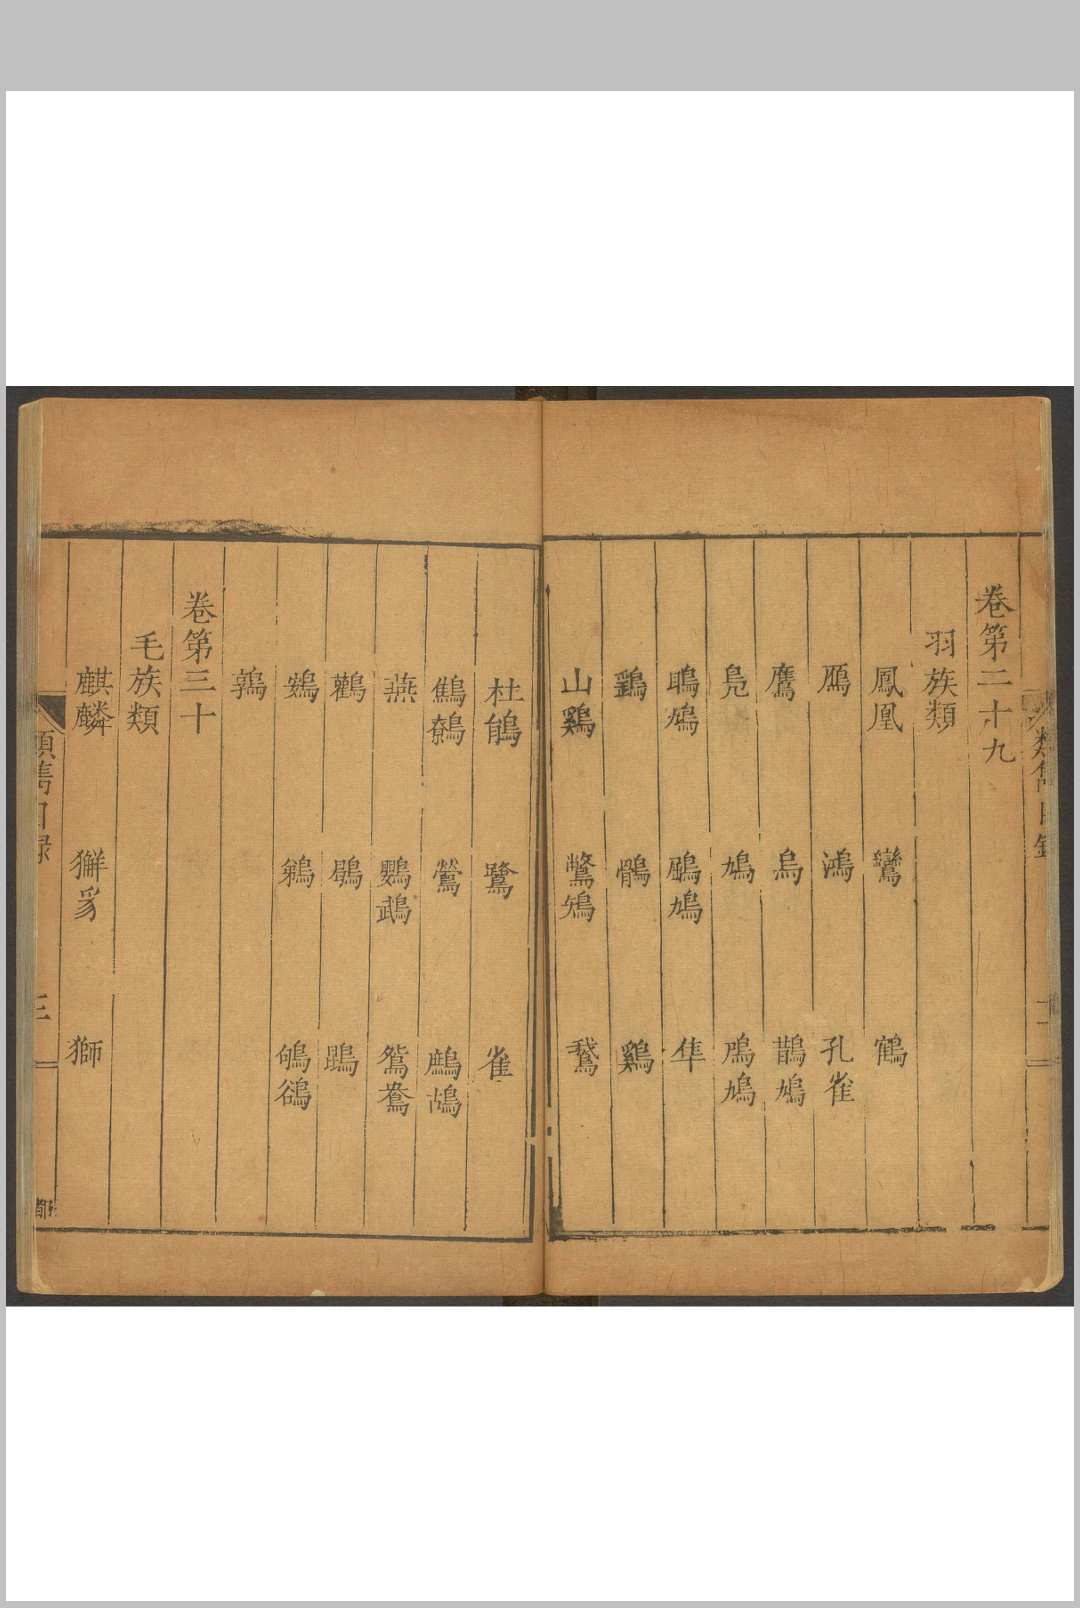 類雋目錄
卷第二十九
羽族類
鳳凰 鸞 鶴
鴈 鴻 孔雀
鷹 烏 鵲鳩
鳧 鳩 鳲鳩
鴡鳩 鳩 隼
鷂 鶻 鷄
山鷄 鷩雉 鵞
杜鵑 鷺 雀
鷦鷯 鶯 鷓鴣
燕 鸚鵡 鴛鴦
鸛
鴳 鴝鵒
鶉
卷第三十
毛族類
麒麟 獬豸 獅
類雋目錄 三